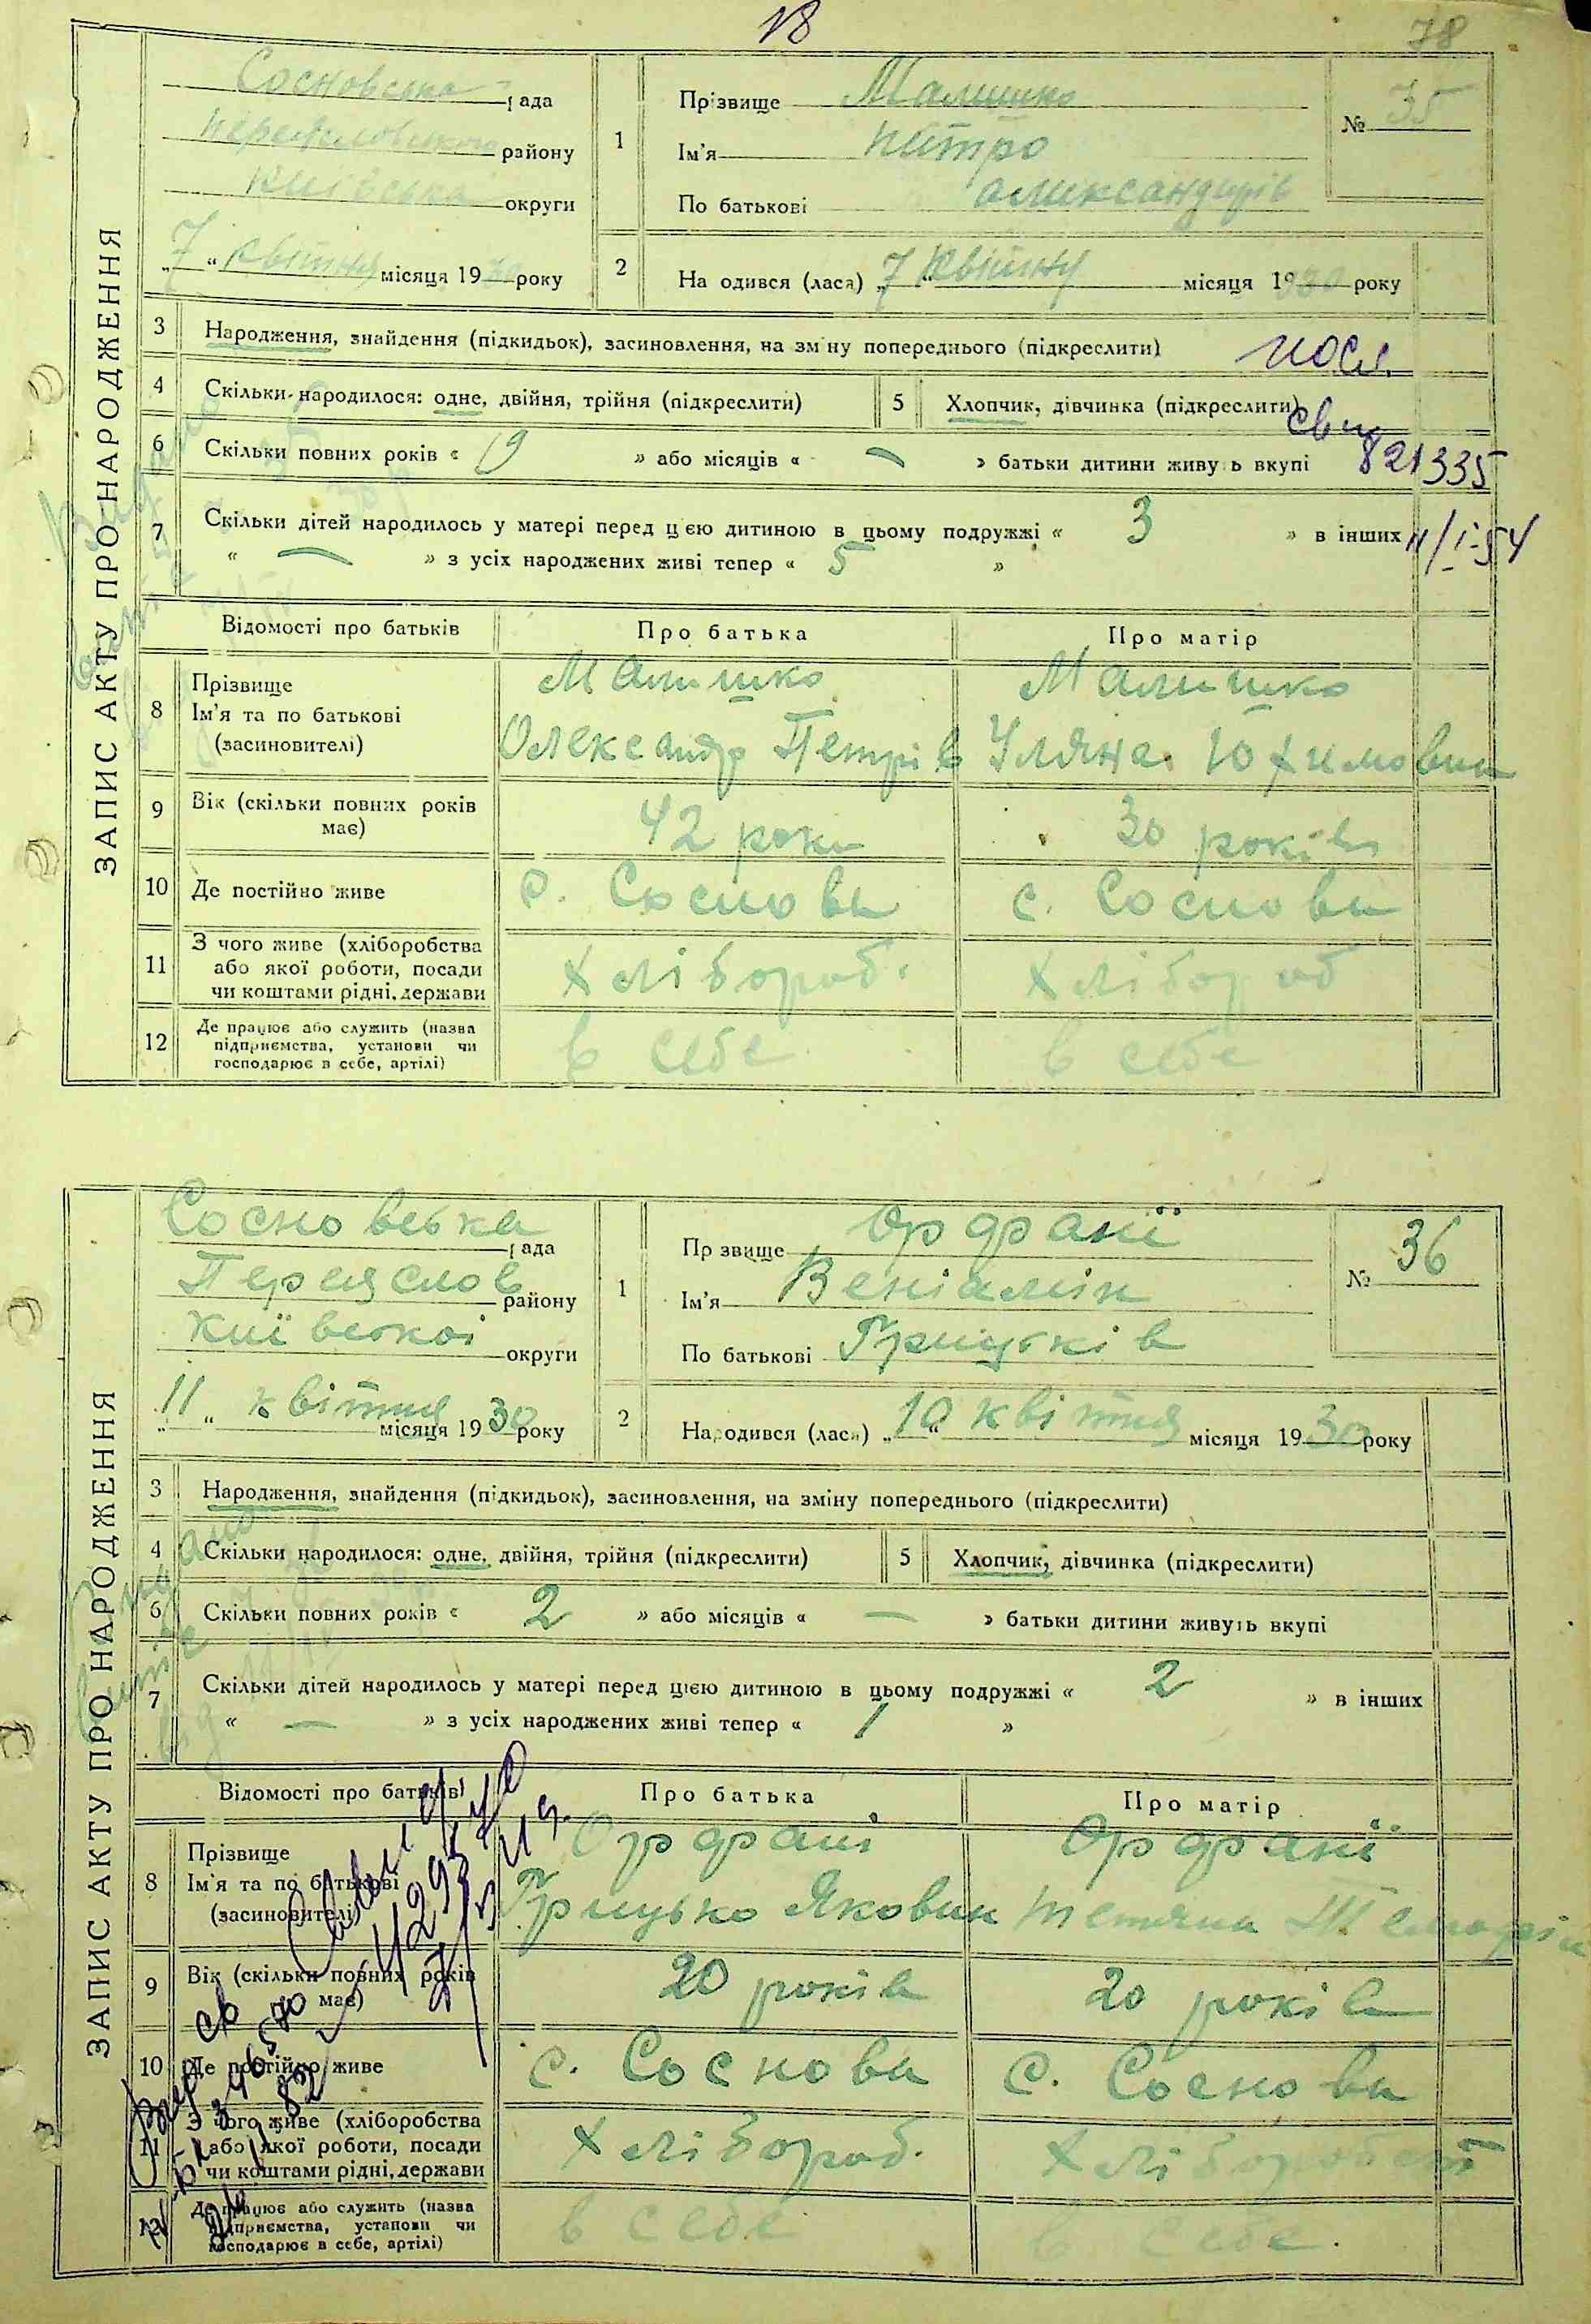 18
78
ЗАПИС АКТУ ПРО НАРОДЖЕННЯ
Сосновська рада
району
Київська округи
„7“ квітня місяця 1930 року
1
Прізвище Малишко
Ім'я Питро
По батькові
№ 35
2
На одився (лася) „7“ квітня місяця 1930 року
3 Народження, знайдення (підкидьок), засиновлення, на зміну попереднього (підкреслити)
4 Скільки народилося: одне, двійня, трійня (підкреслити)
5 Хлопчик, дівчинка (підкреслити)
821335
6 Скільки повних років « 9 » або місяців « — » батьки дитини живуть вкупі
7 Скільки дітей народилось у матері перед цією дитиною в цьому подружжі « 3 » в інших
11/I-54
« — » з усіх народжених живі тепер « 5 »
Відомості про батьків Про батька Про матір
8 Прізвище
Ім'я та по батькові
(засиновителі)
Малишко
Олександр Петрів
Малишко
Уляна
9 Вік (скільки повних років має) 42 роки 30 років
10 Де постійно живе с. Соснови с. Соснови
11 З чого живе (хліборобства
або якої роботи, посади
чи коштами рідні, держави
Хлібороб. Хлібороб
12 Де працює або служить (назва
підприємства, установи чи
господарює в себе, артілі)
в себе в себе
ЗАПИС АКТУ ПРО НАРОДЖЕННЯ
Сосновська рада
Переяслов району
Київської округи
„11“ квітня місяця 1930 року
1
Пр звище Орданії
Веніамін
Ім'я
По батькові Грицьків
№ 36
2
Народився (лася) „10“ квітня місяця 1930 року
3 Народження, знайдення (підкидьок), засиновлення, на зміну попереднього (підкреслити)
4 Скільки народилося: одне, двійня, трійня (підкреслити)
5 Хлопчик, дівчинка (підкреслити)
6 Скільки повних років « 2 » або місяців « — » батьки дитини живуть вкупі
7 Скільки дітей народилось у матері перед цією дитиною в цьому подружжі « 2 » в інших
« — » з усіх народжених живі тепер « 1 »
Відомості про батьків Про батька Про матір
8 Прізвище
Ім'я та по батькові
(засиновителі)
Грицько Якович
Тетяна
9 Вік (скільки повних років має) 20 років 20 років
10 Де постійно живе с. Соснови с. Соснови
11 З чого живе (хліборобства
або якої роботи, посади
чи коштами рідні, держави
Хлібороб.
12 Де працює або служить (назва
підприємства, установи чи
господарює в себе, артілі)
в себе в себе.